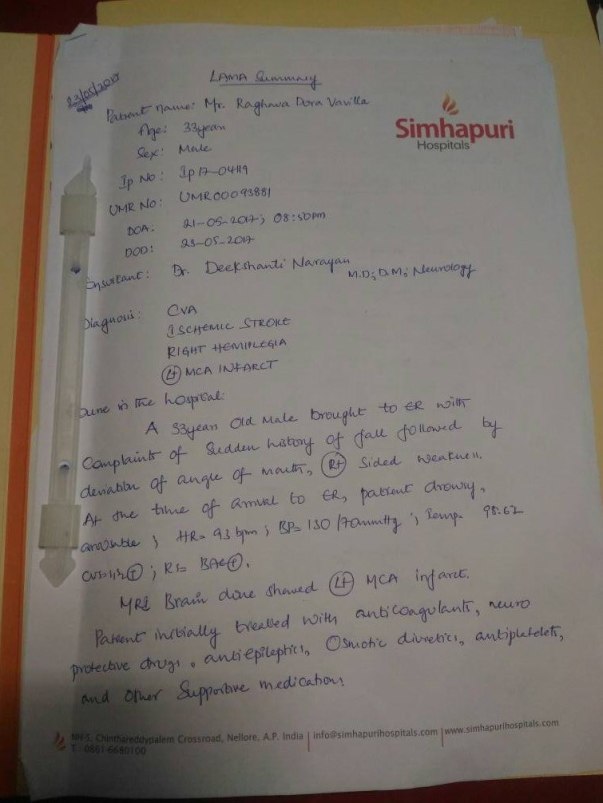 23/05/2017
LAMA Summary
Simhapuri
Hospitals
Patient name: Mr. Raghava Dora Vavilla
Age: 33year
Sex: Male
Ip No: Ip17-0419
UMR No: UMR00093881
DOA: 21-05-2017; 08:50pm
DOD: 23-05-2017
Consultant: Dr. Deekshanti Narayan M.D; D.M; Neurology
Diagnosis: CVA
ISCHEMIC STROKE
RIGHT HEMIPLEGIA
Lt MCA INFARCT
in the hospital:
A 33year Old Male brought to ER with
Complaints of Sudden history of fall followed by
deviation of angle of mouth, Rt Sided weakness.
At the time of arrival to ER, patient drowsy,
arousable; HR= 93 bpm; BP= 130/70mmHg; Temp 98.6
CVS= S1S2+; RS= BAE+.
MRI Brain done showed Lt MCA infarct.
Patient initially treated with anticoagulants, neuro
protective drugs, antiepileptics, Osmotic diuretics, antiplatelets,
and Other Supportive medications
NH-5, Chinthareddypalem Crossroad, Nellore, A.P. India | info@simhapurihospitals.com | www.simhapurihospitals.com
T. 0861-6680100